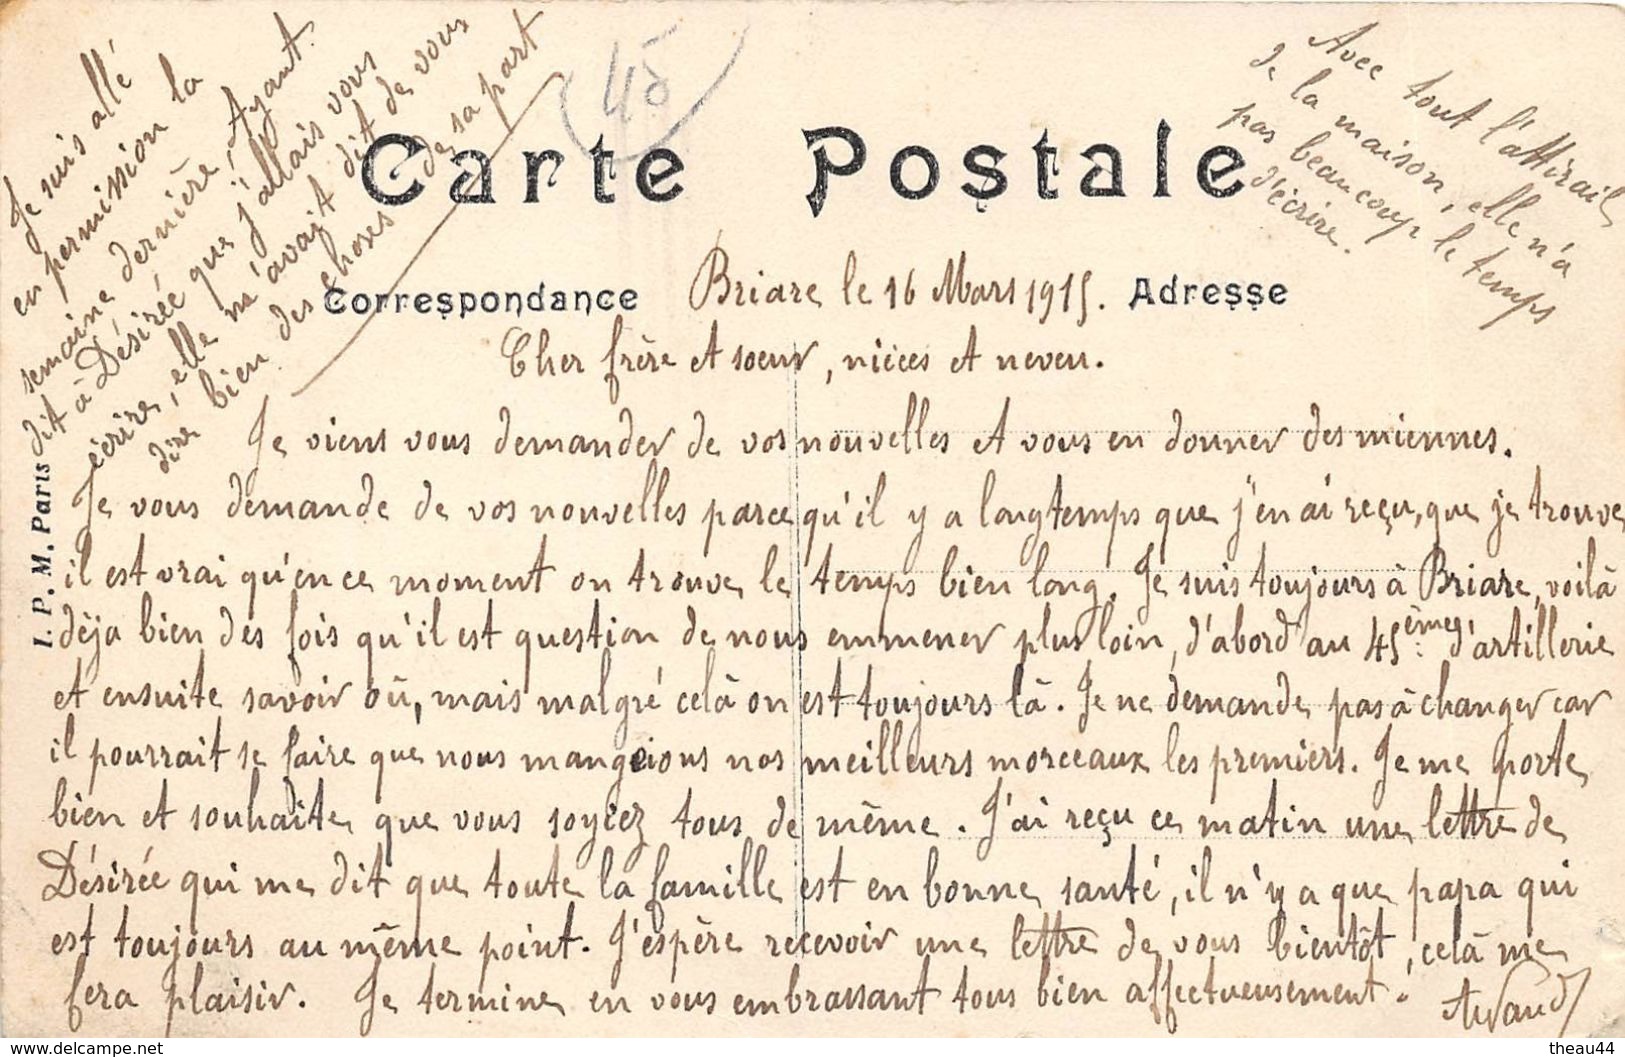 45
Carte Postale
Correspondance
Adresse
I. P. M. Paris
Briare le 16 Mars 1915.
Cher frère et soeur, nièces et neveu.
Je viens vous demander de vos nouvelles et vous en donner des miennes.
Je vous demande de vos nouvelles parce qu'il y a longtemps que j'en ai reçu, que je trouve
il est vrai qu'en ce moment on trouve le temps bien long. Je suis toujours à Briare, voilà
déja bien des fois qu'il est question de nous emmener plus loin, d'abord au 45ème d'artillerie
et ensuite savoir où, mais malgré celà on est toujours là. Je ne demande pas à changer car
il pourrait se faire que nous mangeions nos meilleurs morceaux les premiers. Je me porte
bien et souhaite que vous soyiez tous de même. J'ai reçu ce matin une lettre de
Désirée qui me dit que toute la famille est en bonne santé, il n'y a que papa qui
est toujours au même point. J'espère recevoir une lettre de vous bientôt, celà me
fera plaisir. Je termine en vous embrassant tous bien affectueusement.
Je suis allé
en permission la
semaine dernière, Ayant
dit à Désirée que j'allais vous
écrire, elle m'avait dit de vous
dire bien des choses de sa part
Avec tout l'attirail
de la maison, elle n'a
pas beaucoup le temps
d'écrire.
https://www.delcampe.net
theau44